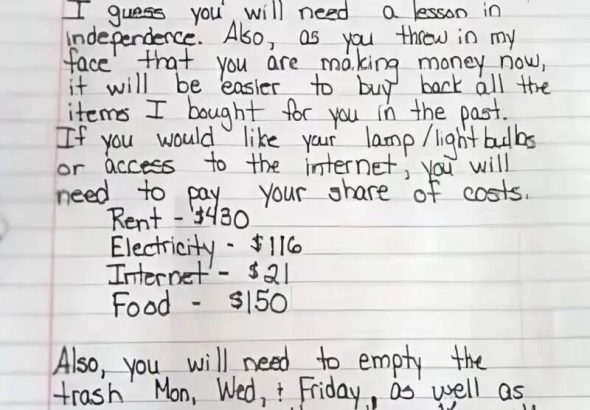 I guess you will need a lesson in
independence. Also, as you threw in my
face that you are making money now,
it will be easier to buy back all the
items I bought for you in the past.
If you would like your lamp/lightbulbs
or access to the internet, you will
need to pay your share of costs.
Rent - $430
Electricity - $116
Internet - $21
Food - $150
Also, you will need to empty the
trash Mon, Wed, + Friday, as well as